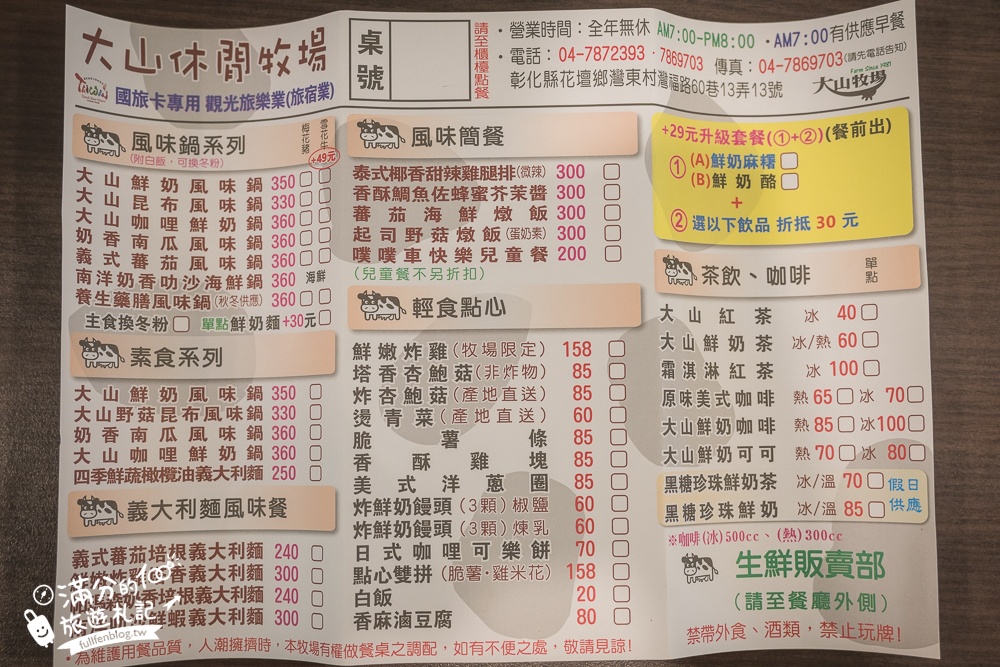 大山休閒牧場
國旅卡專用 觀光旅樂業(旅宿業)
桌號
請至櫃檯點餐
・營業時間：全年無休 AM7:00-PM8:00・AM7:00有供應早餐
・電話：04-7872393・7869703 傳真：04-7869703(請先電話告知)
彰化縣花壇鄉灣東村灣福路60巷13弄13號
Farm Since 1981
大山牧場
風味鍋系列
(附白飯，可換冬粉)
梅花豬
雪花牛
+49元
大山鮮奶風味鍋 350
大山昆布風味鍋 330
大山咖哩鮮奶鍋 360
奶香南瓜風味鍋 360
義式蕃茄風味鍋 360
南洋奶香叻沙海鮮鍋 360 海鮮
養生藥膳風味鍋(秋冬供應) 360
主食換冬粉 單點鮮奶麵+30元
素食系列
大山鮮奶風味鍋 350
大山野菇昆布風味鍋 330
奶香南瓜風味鍋 360
大山咖哩鮮奶鍋 360
四季鮮蔬橄欖油義大利麵 250
義大利麵風味餐
義式蕃茄培根義大利麵 240
香義大利麵 300
香培根義大利麵 240
鮮蝦義大利麵 300
風味簡餐
泰式椰香甜辣雞腿排(微辣) 300
香酥鯛魚佐蜂蜜芥茉醬 300
蕃茄海鮮燉飯 300
起司野菇燉飯(蛋奶素) 300
噗噗車快樂兒童餐 200
(兒童餐不另折扣)
輕食點心
鮮嫩炸雞(牧場限定) 158
塔香杏鮑菇(非炸物) 85
炸杏鮑菇(產地直送) 85
燙青菜(產地直送) 60
脆薯條 85
香酥雞塊 85
美式洋蔥圈 85
炸鮮奶饅頭(3顆)椒鹽 60
炸鮮奶饅頭(3顆)煉乳 60
日式咖哩可樂餅 70
點心雙拼(脆薯・雞米花) 158
白飯 20
香麻滷豆腐 80
+29元升級套餐(①+②)(餐前出)
① (A)鮮奶麻糬
(B)鮮奶酪
+
② 選以下飲品 折抵 30 元
茶飲、咖啡 單點
大山紅茶 冰 40
大山鮮奶茶 冰/熱 60
霜淇淋紅茶 冰 100
原味美式咖啡 熱 65 冰 70
大山鮮奶咖啡 熱 85 冰 100
大山鮮奶可可 熱 70 冰 80
黑糖珍珠鮮奶茶 冰/溫 70
黑糖珍珠鮮奶 冰/溫 85
假日供應
※咖啡(冰)500cc、(熱)300cc
生鮮販賣部
(請至餐廳外側)
禁帶外食、酒類，禁止玩牌!
・為維護用餐品質，人潮擁擠時，本牧場有權做餐桌之調配，如有不便之處，敬請見諒!
滿分的
旅遊札記
fullfenblog.tw